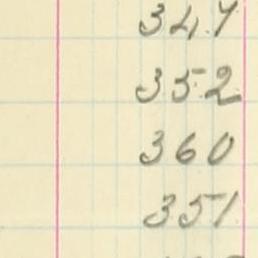 347
352
360
351